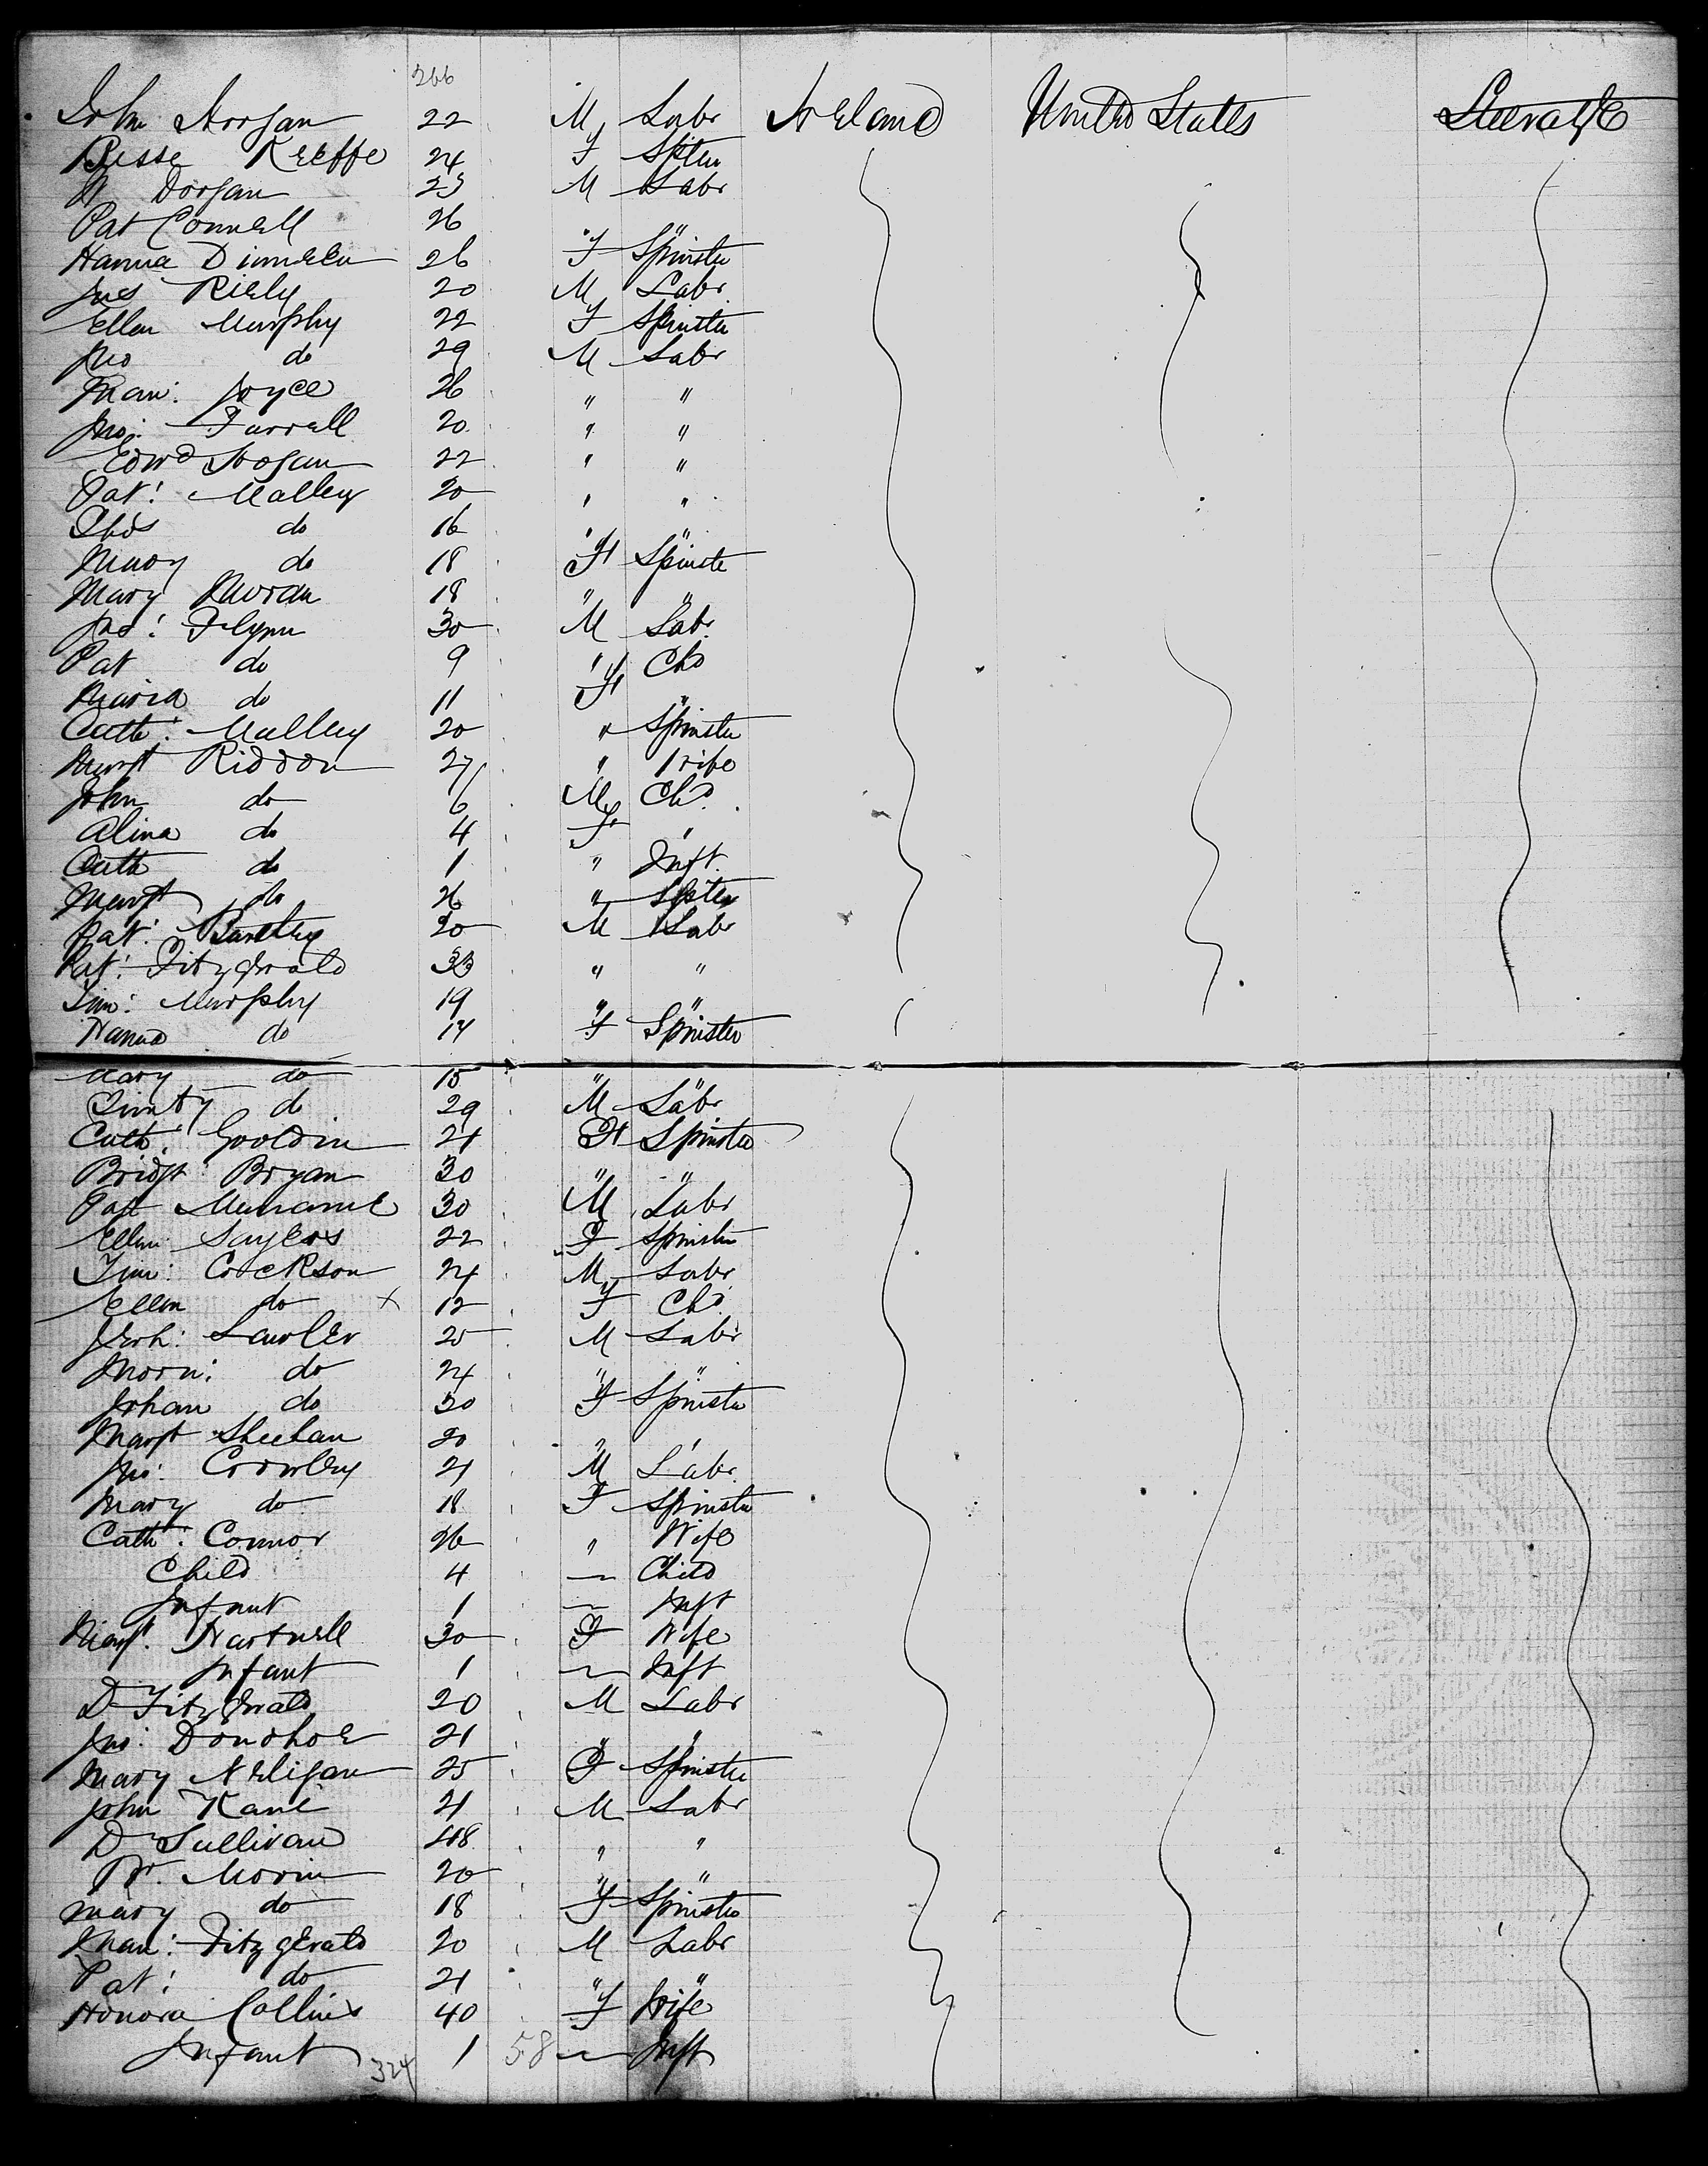 266
John Horgan 22 M Labr Ireland United States Steerage
Besse Keeffe 24 F Spter
W Dorgan 23 M Labr
Pat Connell 26 " "
Hanna Dinneen 26 F Spinster
Jas Riely 20 M Labr
Ellen Murphy 22 F Spinster
Jno do 29 M Labr
Mau: Joyce 26 " "
Jno: Farrell 20 " "
Edwd Hogan 22 " "
Pat: Malley 20 " "
Thos do 16 " "
Mary do 18 F Spinste
Mary Moran 18 " "
Jno: Flynn 30 M Labr
Pat do 9 " Chd
Maria do 11 F "
Cath: Malley 20 " Spinster
Margt Riddon 27 " Wife
John do 6 M Chd
Alina do 4 F "
Cath do 1 " Inft
Margt do 26 " Spster
Pat: 20 M Labr
Pat: Fitzgerald 33 " "
Tim: Murphy 19 " "
Hanna do 17 F Spinster
Mary do 15 " "
Timty do 29 M Labr
Cath: Gooldin 21 F Spinster
Bridgt Bryan 30 " "
Pat 30 M Labr
Ellen Sayers 22 F Spinster
Tim: Cockson 24 M Labr
Ellen do x 12 F Chd
Jerh: Lawler 25 M Labr
Morn: do 24 " "
Johan do 30 F Spinster
Margt Sheehan 20 " "
Jno: Crowley 21 M Labr
Mary do 18 F Spinster
Cath: Connor 26 " Wife
Child 4 — Child
Infant 1 — Inft
Margt. Hartnell 30 F Wife
Infant 1 — Inft
D Fitzgerald 20 M Labr
Jno: Donohoe 21 " "
Mary Neligan 25 F Spinster
John Kane 21 M Labr
D Sullivan 48 " "
Wr. Morin 20 " "
Mary do 18 F Spinster
Mau: Fitzgerald 20 M Labr
Pat: do 21 " "
Honora Collins 40 F Wife
Infant 324 1 58 — Inft